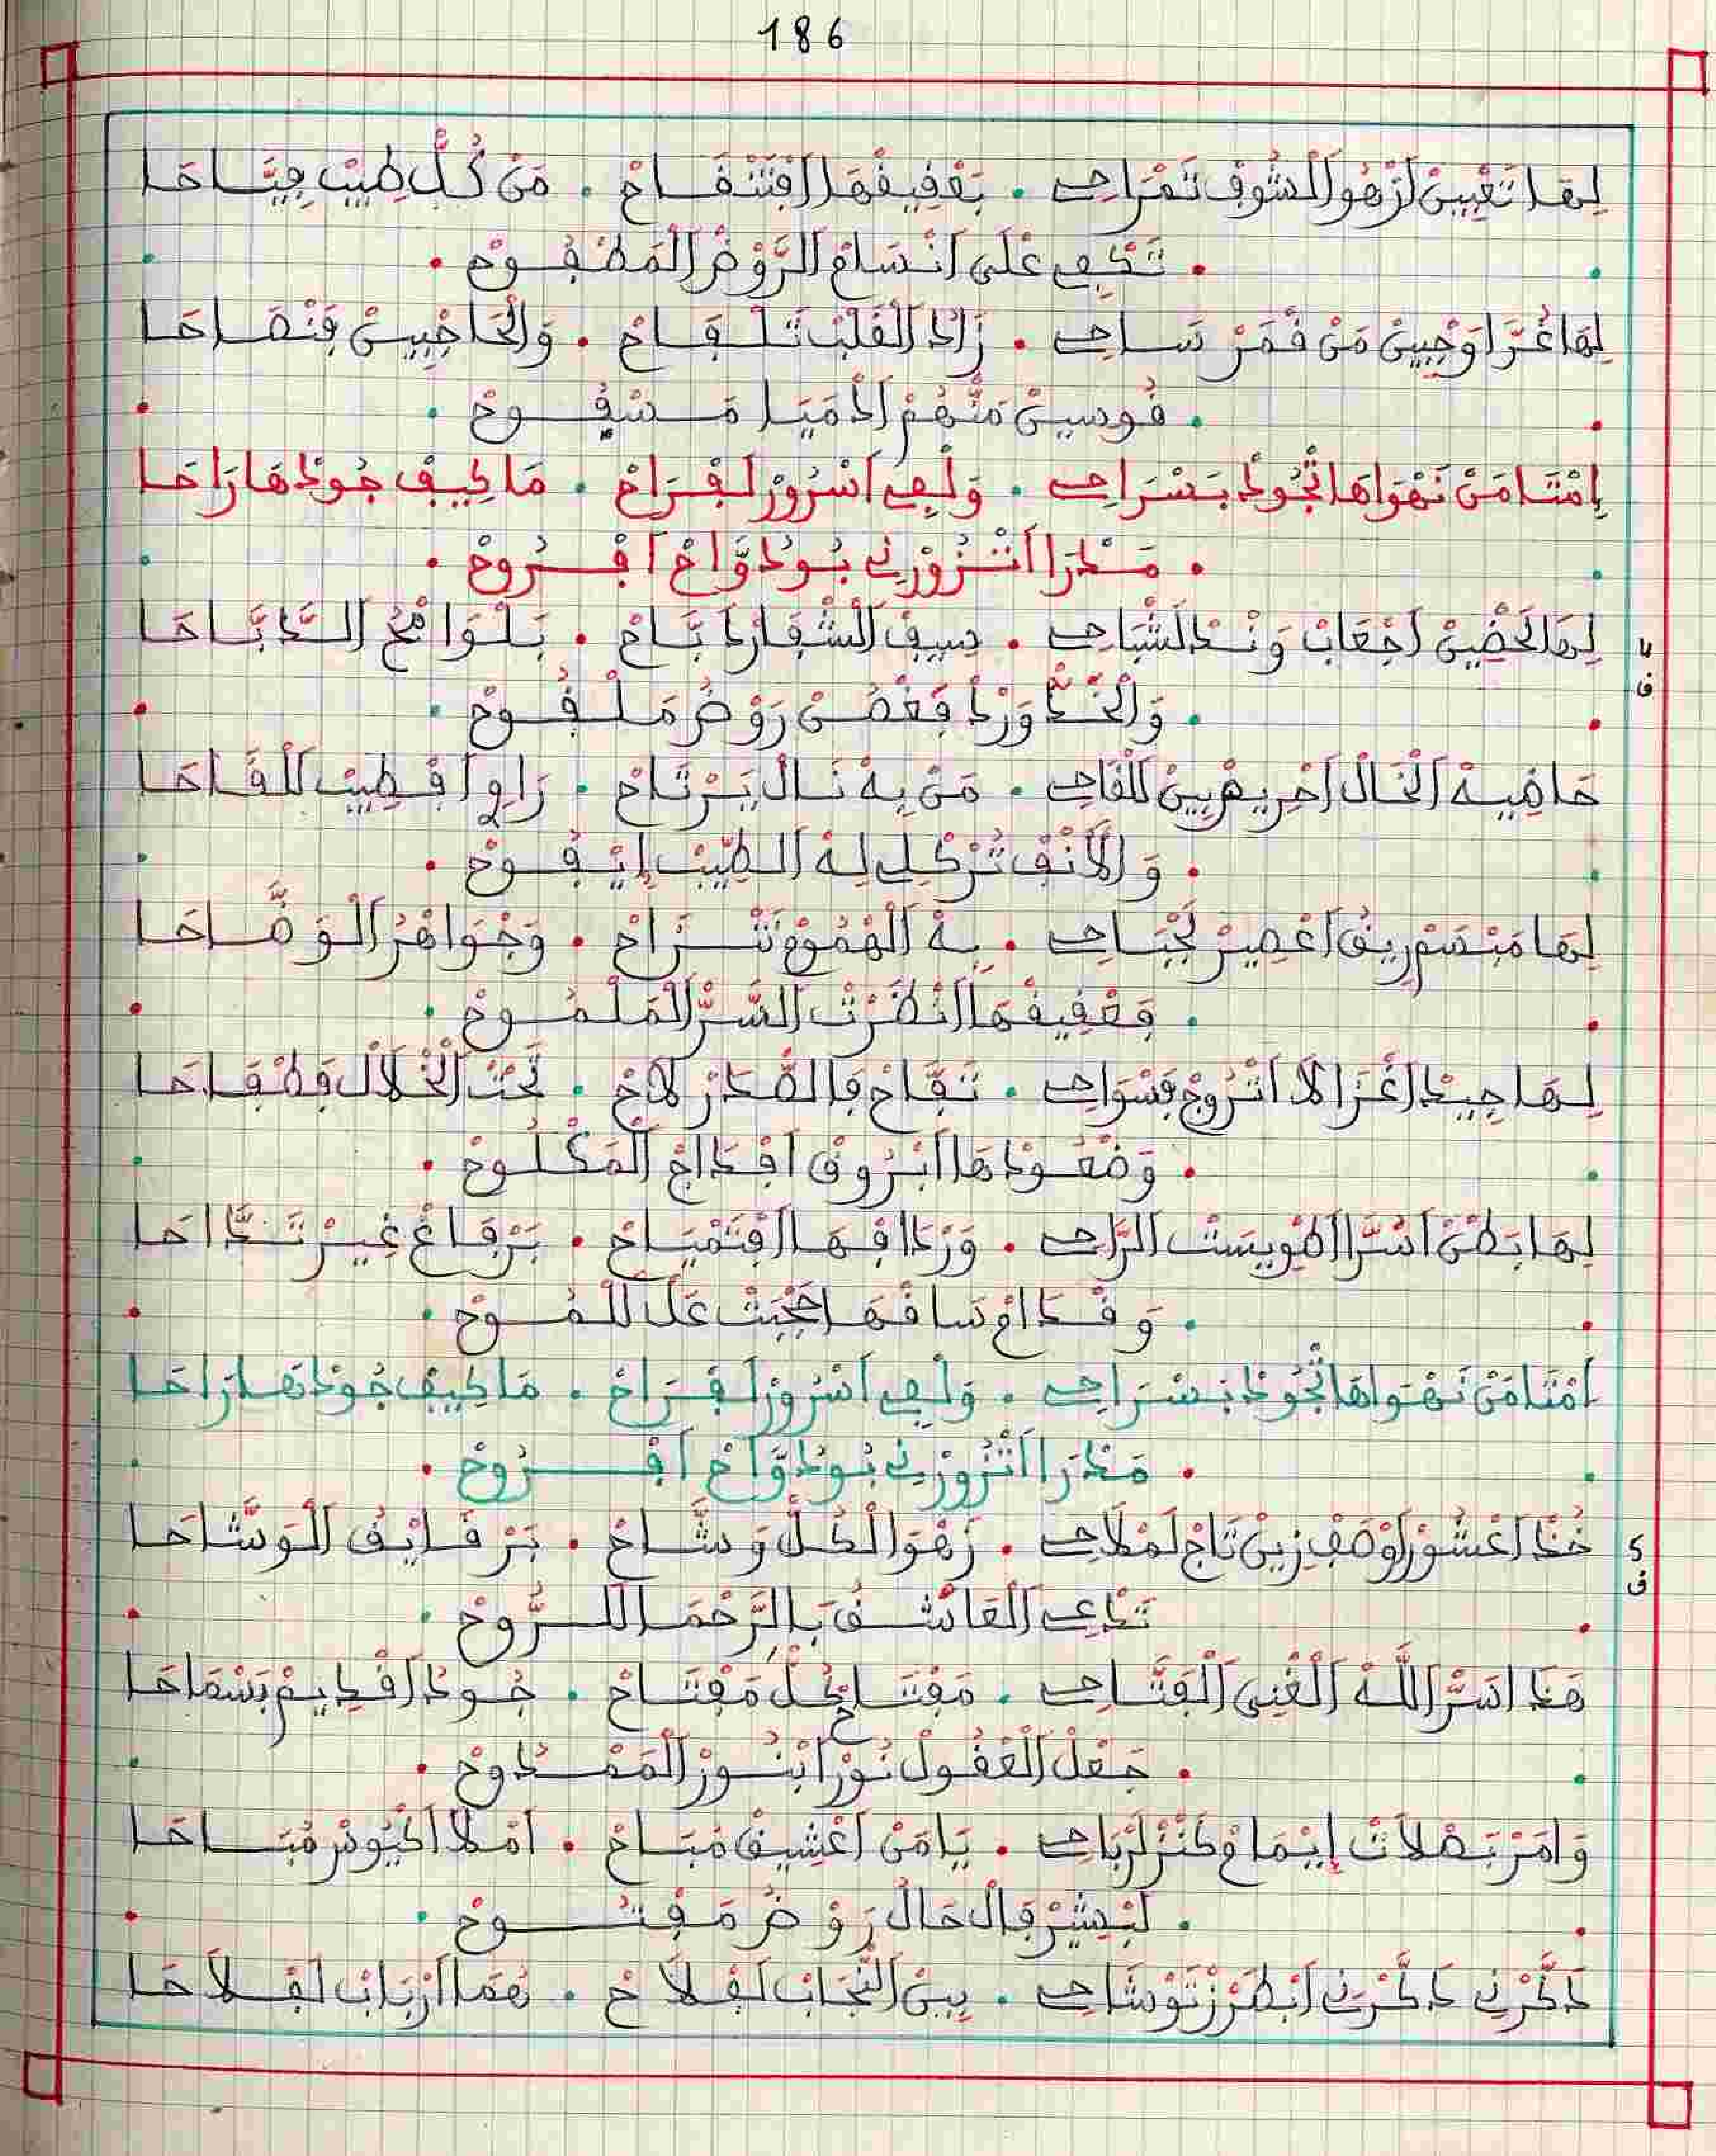 186
لها تغيين ازهو الشوف تمراحي . بعقيقها افتنفاح . من كل طيب فياحا
. تكفي على انسام الروض المطفوح .
لها غرا وجبين من قمر ساحي . زاد القلب تلقاح . والحاجبين فنصاحا
. قوسين منهم ادميا مسفوح .
إمتا من نهواها تجود بسراحي . ولفي اسرور لفراح . ما كيف جودها راحا
. مدرا اتزورني بو دواح افروح .
لها لحضين اجعاب وند الشباحي . سيف الشفار دباح . بلوامح الدباحا
4
ف
. والخد ورد فغصن روض ملقوح .
حاضيه الخال احريص بين للقاحي . من به نال يرتاح . راوي افطيب للقاحا
. والانف تركلي له الطيب إيفوح .
لها مبسم ريق اعصير لجباحي . به الهموم تنزاح . وجواهر الوضاحا
. فعقيقها انظرت السر الملموح .
لها جيد اغزالا اتروج فسواحي . تفاح فالصدر لاح . تحت الخلال فطفاحا
. وضعودها ابروق افداج المكلوح .
لها بطن اسرا اطويست الراحي . وردافها افتمياح . برفاغ غير تداحا
. وقدام سافها احجبت عل للموح .
امتا من نهواها تجود بسراحي . ولفي اسرور لفراح . ما كيف جودها راحا
. مدرا اتزورني بو دواح افروح .
خد اعشور اوصف زين تاج لملاحي . زهو الكل وشاح . برقايق الوشاحا
5
ف
تدعي العاشق بالرحما للروح .
هدا اسر الله الغني الفتاحي . مفتاح لكل مفتاح . جود اقديم بسماحا
. جعل العقول نورا بنور الممدوح .
وامر بصلات إيمام كنز لرباحي . يا من اعشيق مباح . املا اكيوس مباحا
. لبشير فالحال روض مفتوح .
دكرني دكرني ابطرز توشاحي . بين النجاب لفلاح . هما ارباب لفلاحا